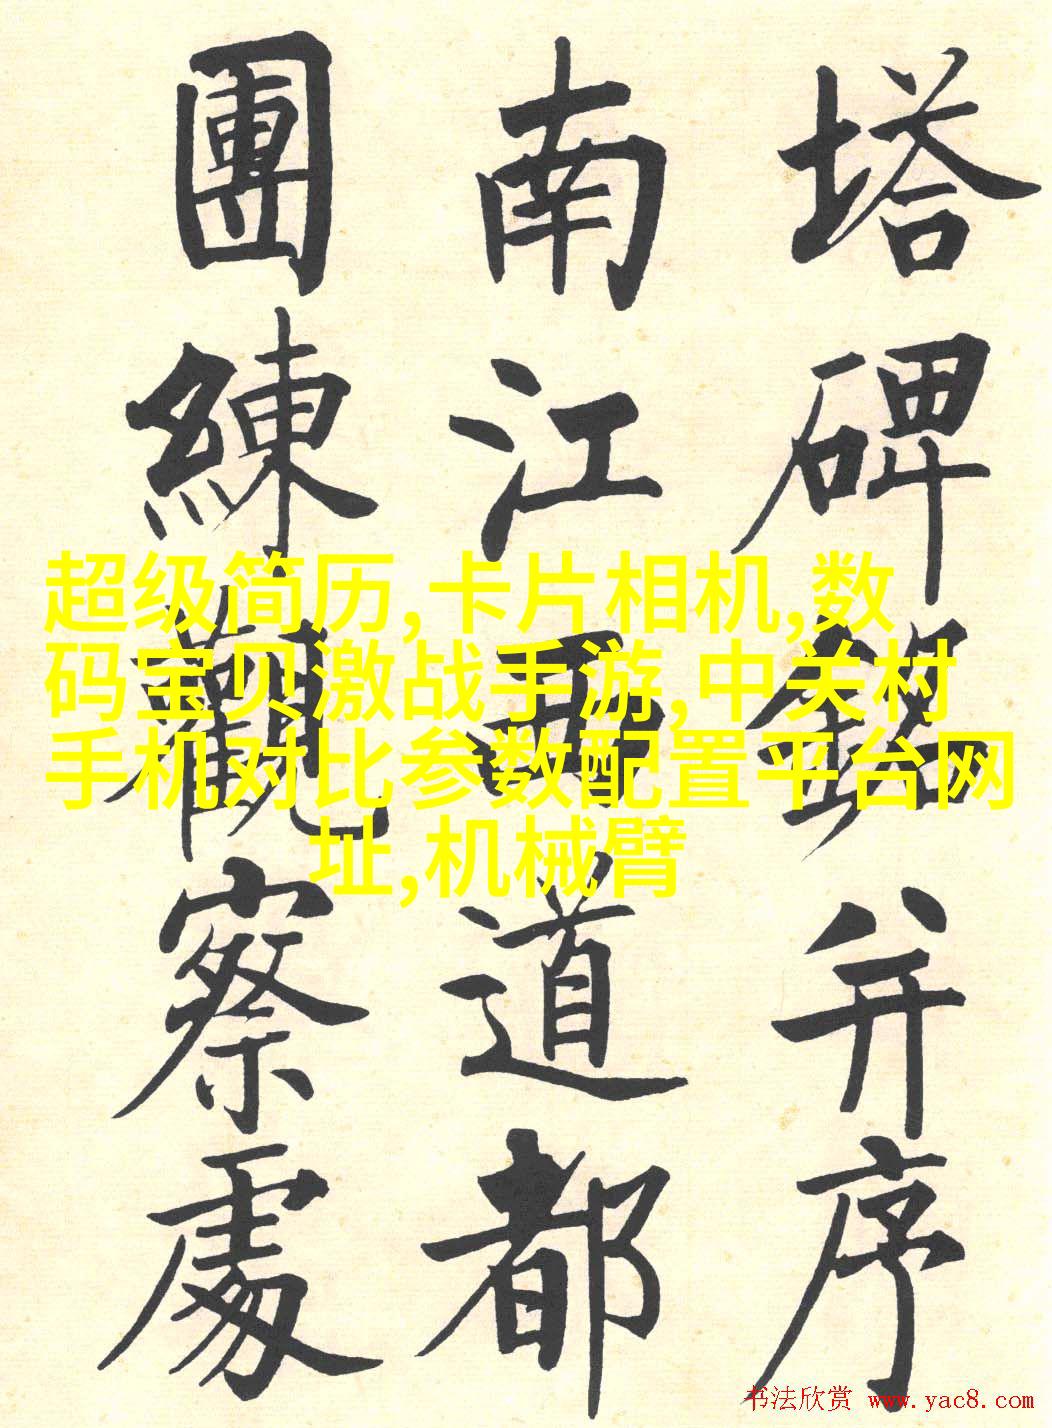 塔碑銘并序
南江西道都
團練觀察處
超级简历,卡片相机,数
码宝贝激战手游,中关村
手机对比参数配置平台网
址,机械臂
书法欣赏 www.yac8.com